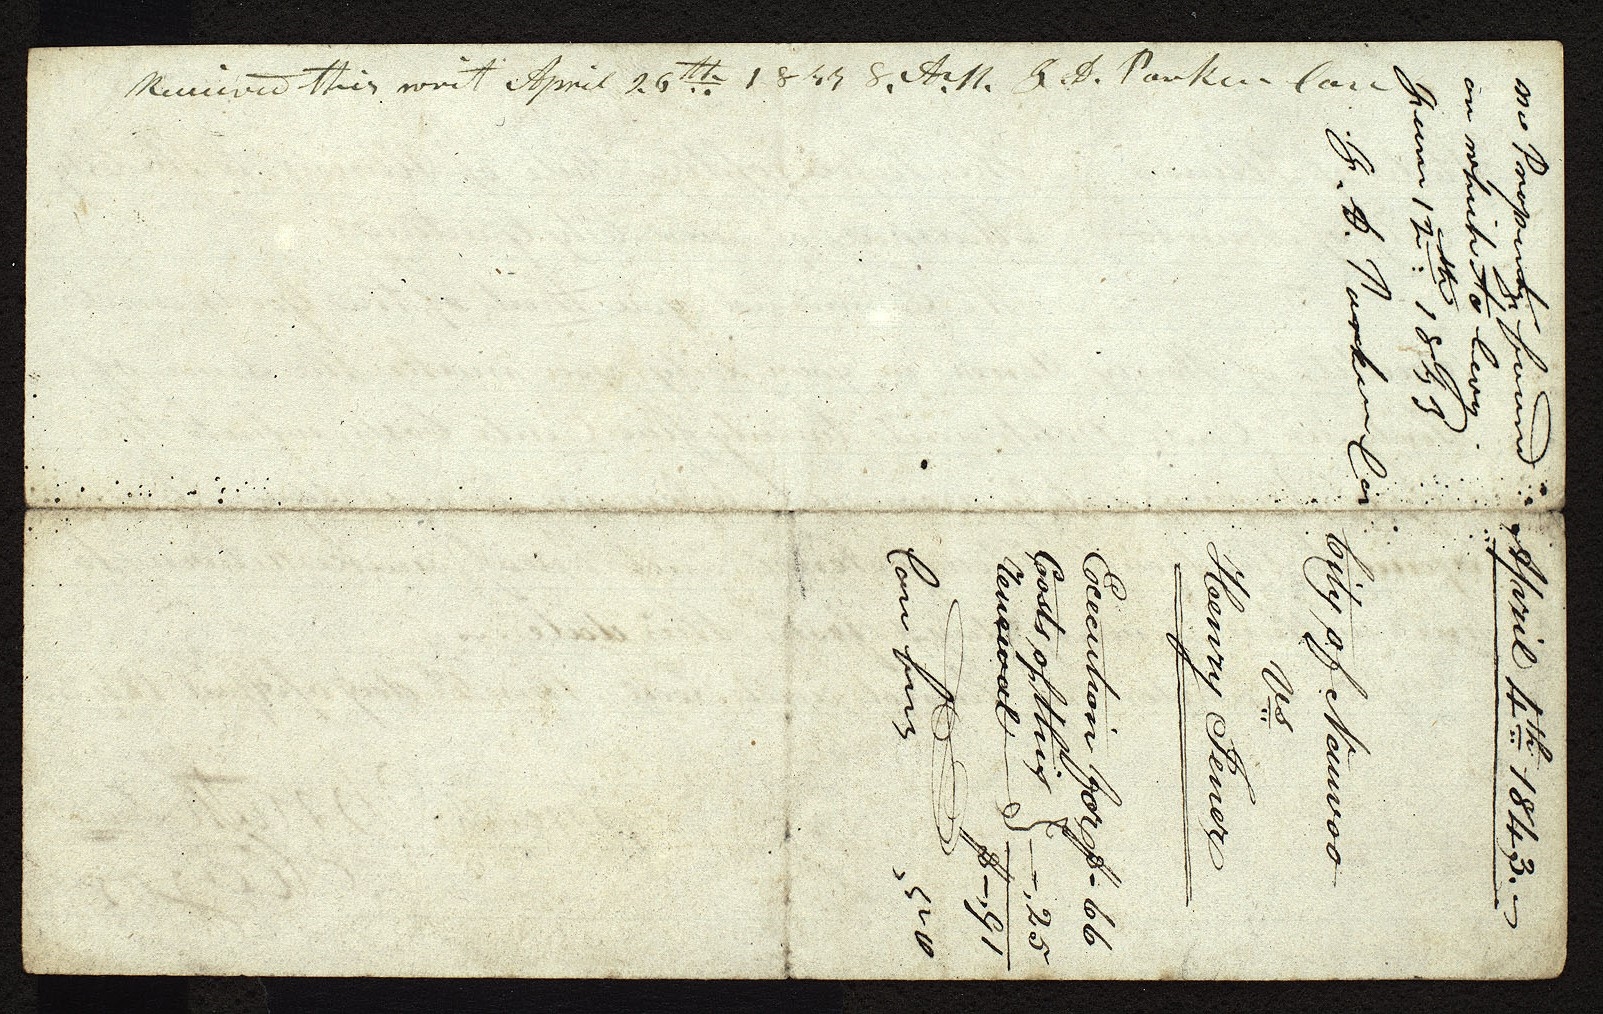 Received this writ April 26th 1843 8. A. M. J D. Parker Con
no Property found
on which to levy
June 17th 1843
J. D. Parker Con
April 4th 1843.
City of Nauvoo
Vs
Henry Tener
Execution for $-66
Costs of this } -,25
renewal
$-,91
Con fees ,50